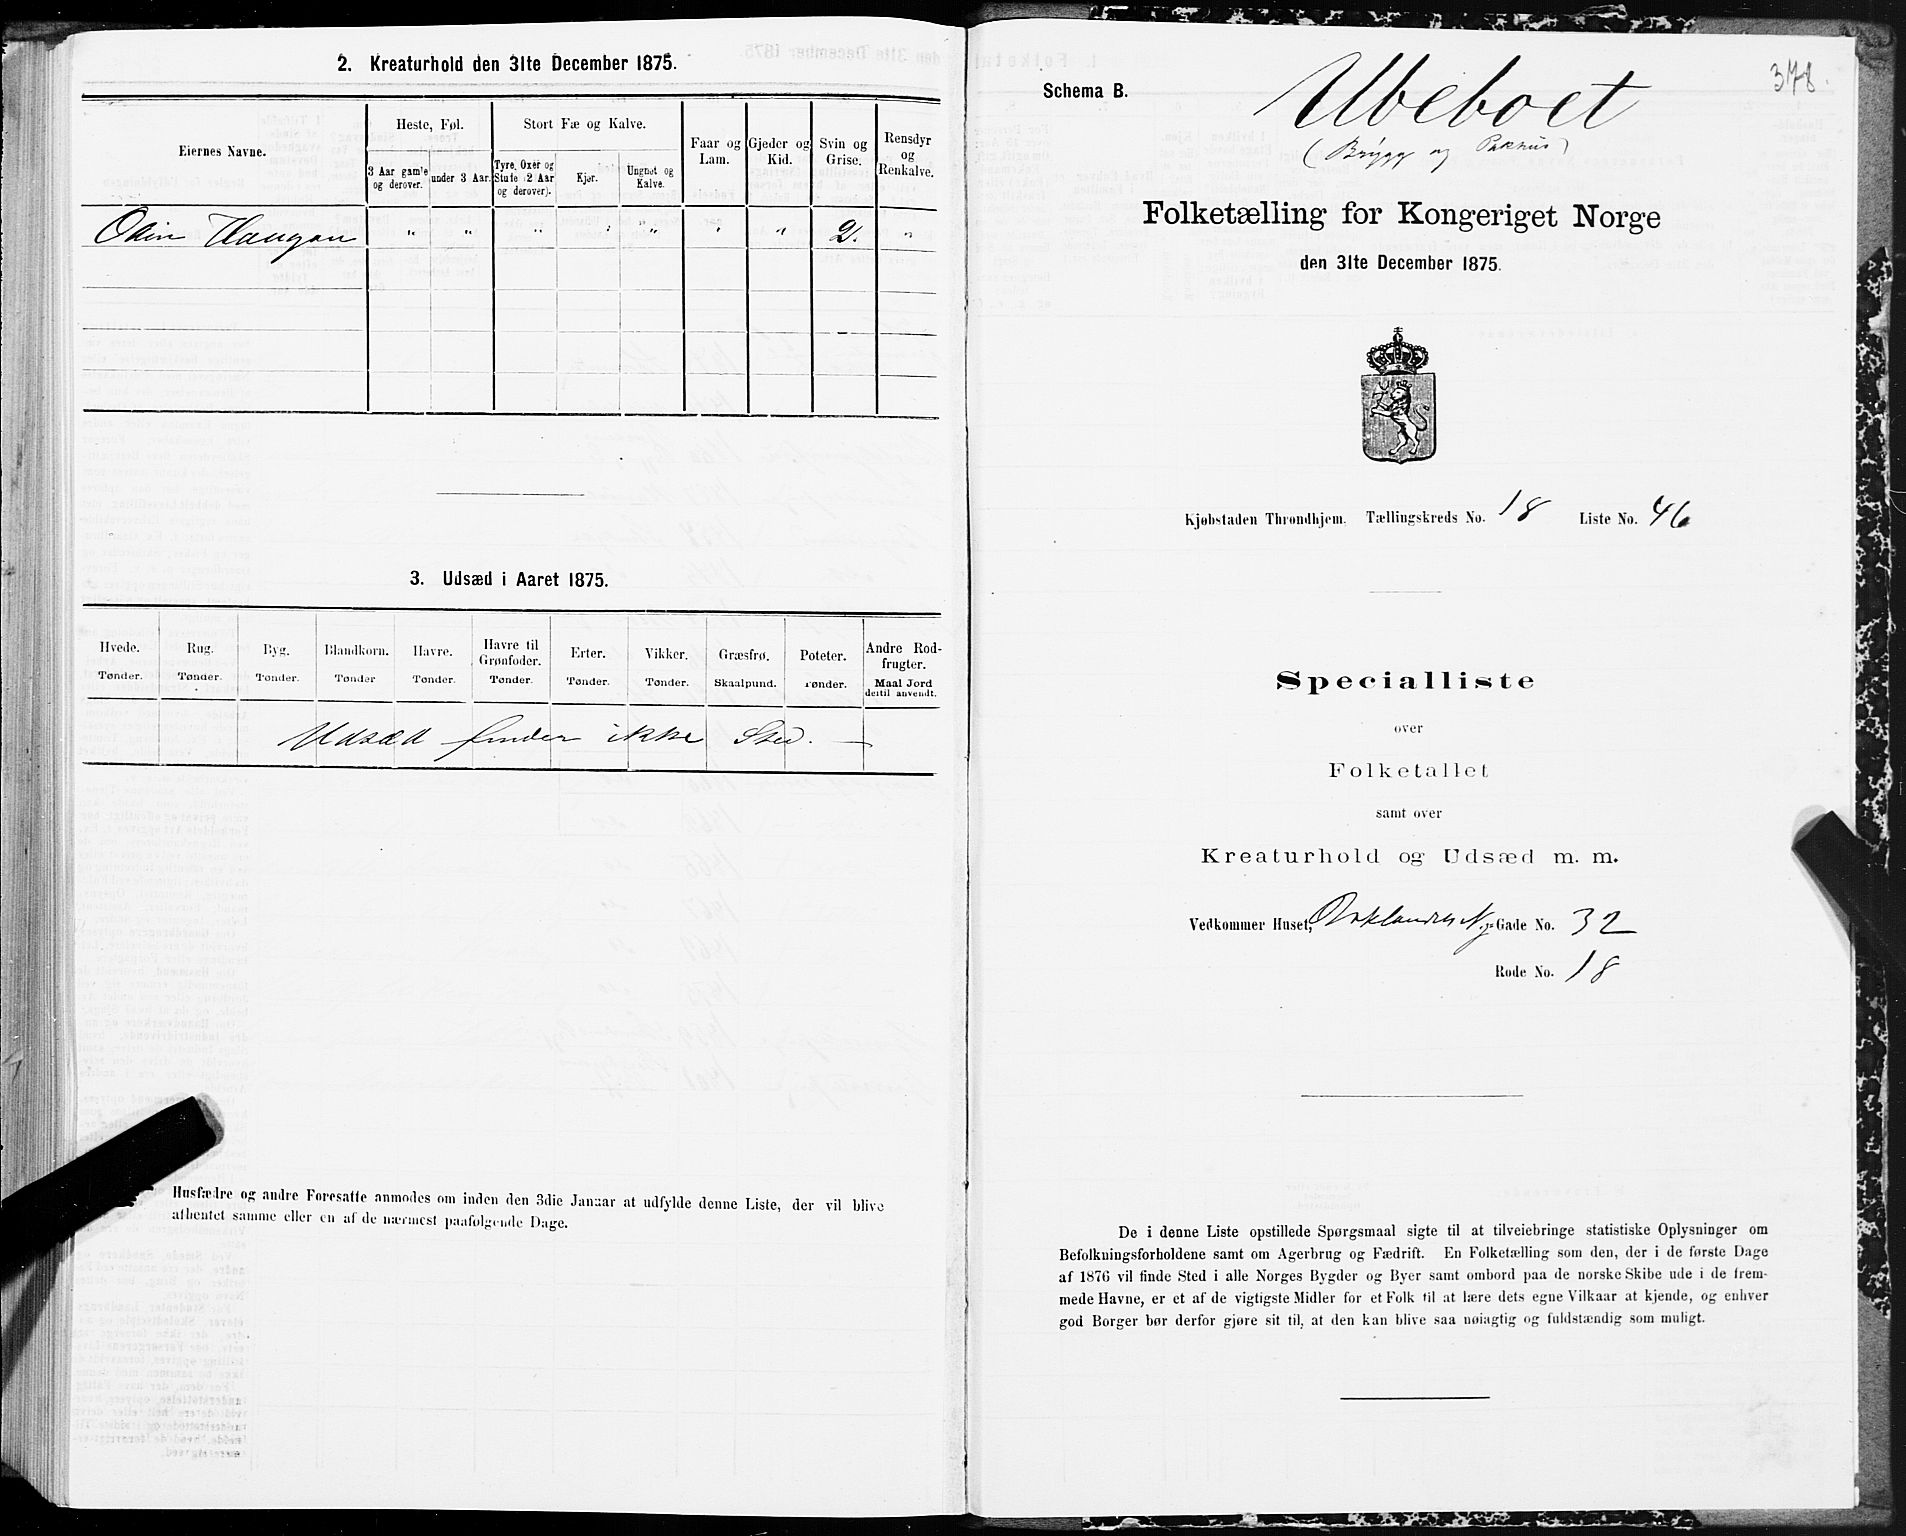 2. Kreaturhold den 31te December 1875.
Eiernes Navne.
Heste, Føl.
Stort Fæ og Kalve.
Faar og Lam.
Gjeder og Kid.
Svin og Grise.
Rensdyr og Renkalve.
3 Aar gamle og derover.
under 3 Aar.
Tyre, Oxer og Stute (2 Aar og derover).
Kjør.
Ungnøt og Kalve.
Odin Haugan " " " " " " " 2. "
3. Udsæd i Aaret 1875.
Hvede. Rug. Byg. Blandkorn. Havre. Havre til Grønfoder. Erter. Vikker. Græsfrø. Poteter. Andre Rodfrugter.
Tønder. Tønder. Tønder. Tønder Tønder. Tønder. Tønder. Tønder. Skaalpund. Tønder. Maal Jord dertil anvendt.
Udsæd finder ikke Sted. —
Husfædre og andre Foresatte anmodes om inden den 3die Januar at udfylde denne Liste, der vil blive
afhentet samme eller en af de nærmest paafølgende Dage.
378.
Schema B.
Ubeboet
(Brygg og Pakhus)
Folketælling for Kongeriget Norge
den 31te December 1875.
Kjøbstaden Throndhjem. Tællingskreds No. 18 Liste No. 46
Specialliste
over
Folketallet
samt over
Kreaturhold og Udsæd m. m.
Vedkommer Huset, Gade No. 32
Rode No. 18
De i denne Liste opstillede Spørgsmaal sigte til at tilveiebringe statistiske Oplysninger om
Befolkningsforholdene samt om Agerbrug og Fædrift. En Folketælling som den, der i de første Dage
af 1876 vil finde Sted i alle Norges Bygder og Byer samt ombord paa de norske Skibe ude i de frem-
mede Havne, er et af de vigtigste Midler for et Folk til at lære dets egne Vilkaar at kjende, og enhver
god Borger bør derfor gjøre sit til, at den kan blive saa nøiagtig og fuldstændig som muligt.